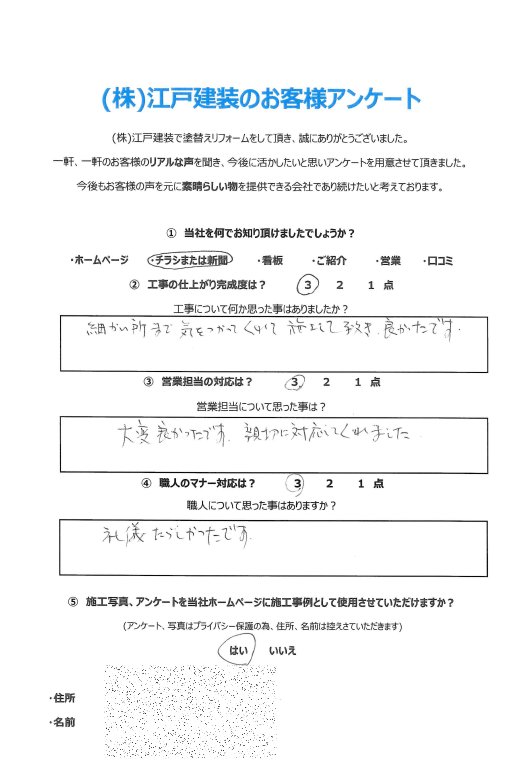 (株)江戸建装のお客様アンケート
(株)江戸建装で塗替えリフォームをして頂き、誠にありがとうございました。
一軒、一軒のお客様のリアルな声を聞き、今後に活かしたいと思いアンケートを用意させて頂きました。
今後もお客様の声を元に素晴らしい物を提供できる会社であり続けたいと考えております。
① 当社を何でお知り頂けましたでしょうか？
・ホームページ ・チラシまたは新聞 ・看板 ・ご紹介 ・営業 ・口コミ
② 工事の仕上がり完成度は？ 3 2 1 点
工事について何か思った事はありましたか？
細かい所まで気をつかってくれて施工して頂き、良かったです。
③ 営業担当の対応は？ 3 2 1 点
営業担当について思った事は？
大変良かったです。親切に対応してくれました
④ 職人のマナー対応は？ 3 2 1 点
職人について思った事はありますか？
礼儀たらしかったです。
⑤ 施工写真、アンケートを当社ホームページに施工事例として使用させていただけますか？
(アンケート、写真はプライバシー保護の為、住所、名前は控えさせていただきます)
はい いいえ
・住所
・名前